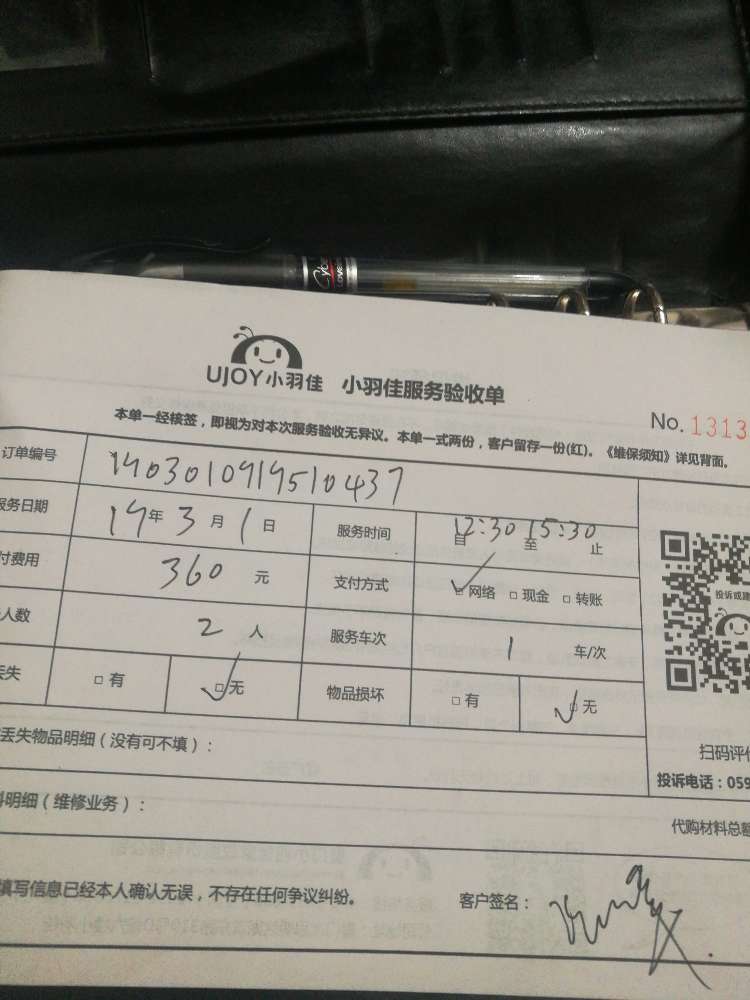 UJOY小羽佳 小羽佳服务验收单
No. 1313
本单一经核签，即视为对本次服务验收无异议。本单一式两份，客户留存一份(红)。《维保须知》详见背面。
订单编号 1903010919510437
服务日期 19年3月1日 服务时间 自12:30至15:30止
付费用 360元 支付方式 网络 现金 转账
人数 2人 服务车次 1 车/次
丢失 有 无 物品损坏 有 无
投诉或建
丢失物品明细（没有可不填）：
扫码评价
投诉电话：059
料明细（维修业务）：
代购材料总额
填写信息已经本人确认无误，不存在任何争议纠纷。 客户签名：